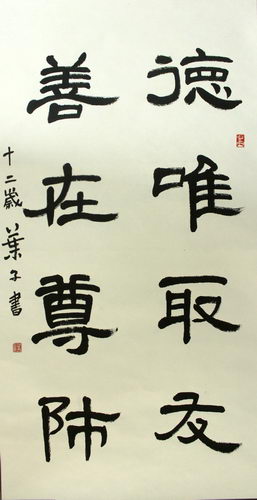 德唯取友
善在尊师
十二歲葉子書